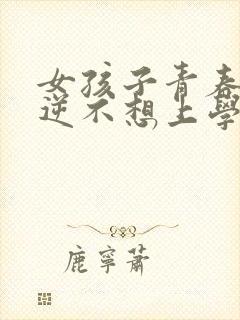 女孩子青春
逆不想上學
鹿寧蕭